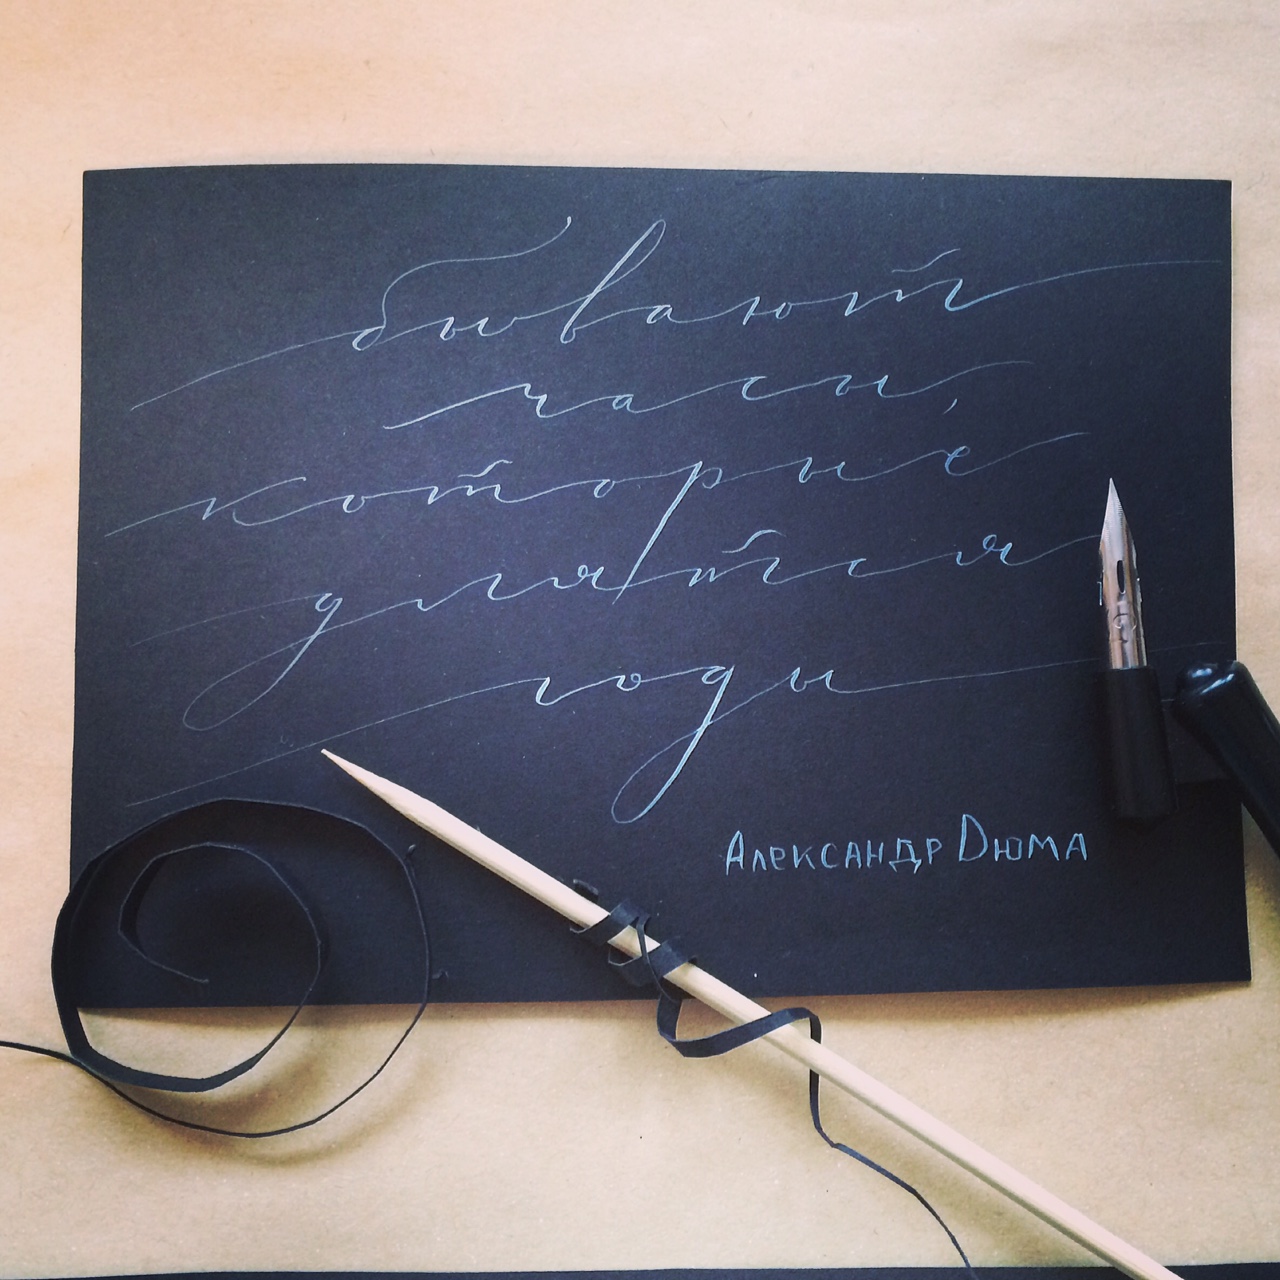 бывают
часы,
которые
длятся
годы
Александр Дюма